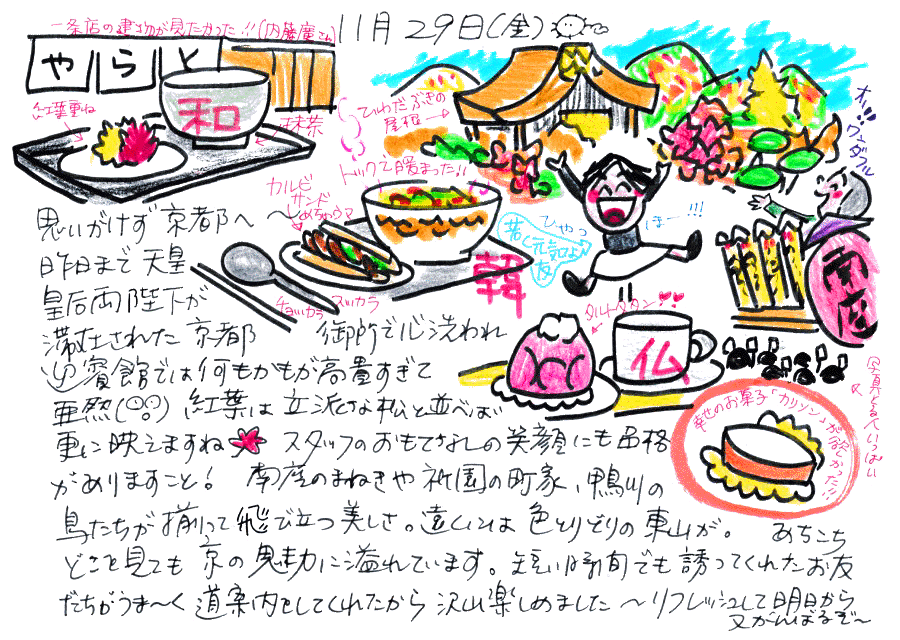 11月29日(金)
一条店の建物が見たかった!!(内藤廣さん)
やらと
和
紅葉重ね
抹茶
ひわだぶきの
屋根
ホットックで暖まった!!
カルビ
サンド
めちゃウマ
韓
チョッカラ
スッカラ
ひやっ
ほー!!!
若く元気な
友
オー!!!
ワンダフル
南座
写真とる人いっぱい
タルトタタン
仏
幸せのお菓子「カリソン」が欲しかった!!
思いがけず京都へ〜
昨日まで天皇
皇后両陛下が
滞在された京都
御所で心洗われ
迎賓館では何もかもが高貴すぎて
亜然 紅葉は立派な松と並べば
更に映えますね スタッフのおもてなしの笑顔にも品格
がありますこと! 南座のまねきや祇園の町家、鴨川の
鳥たちが揃って飛び立つ美しさ。遠くには色とりどりの東山が。 あちこち
どこを見ても京の魅力に溢れています。短い時間でも誘ってくれたお友
だちがうま〜く道案内をしてくれたから沢山楽しめました〜リフレッシュして明日から
又がんばるぞ〜